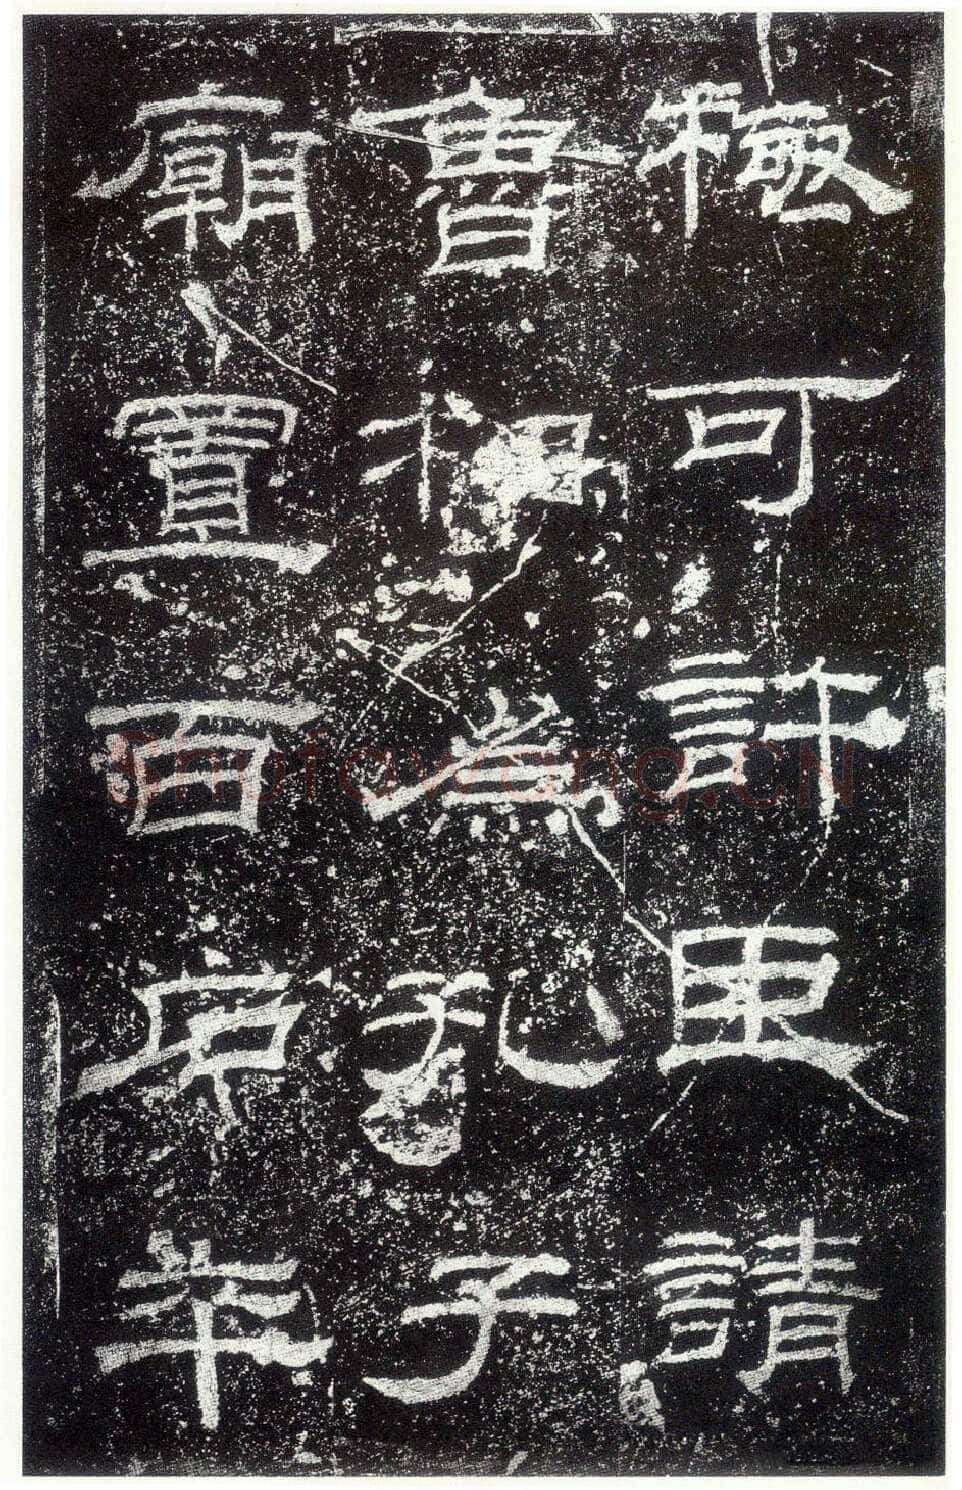 極可許臣請
魯相為孔子
廟置百石卒
Shufawang.CN